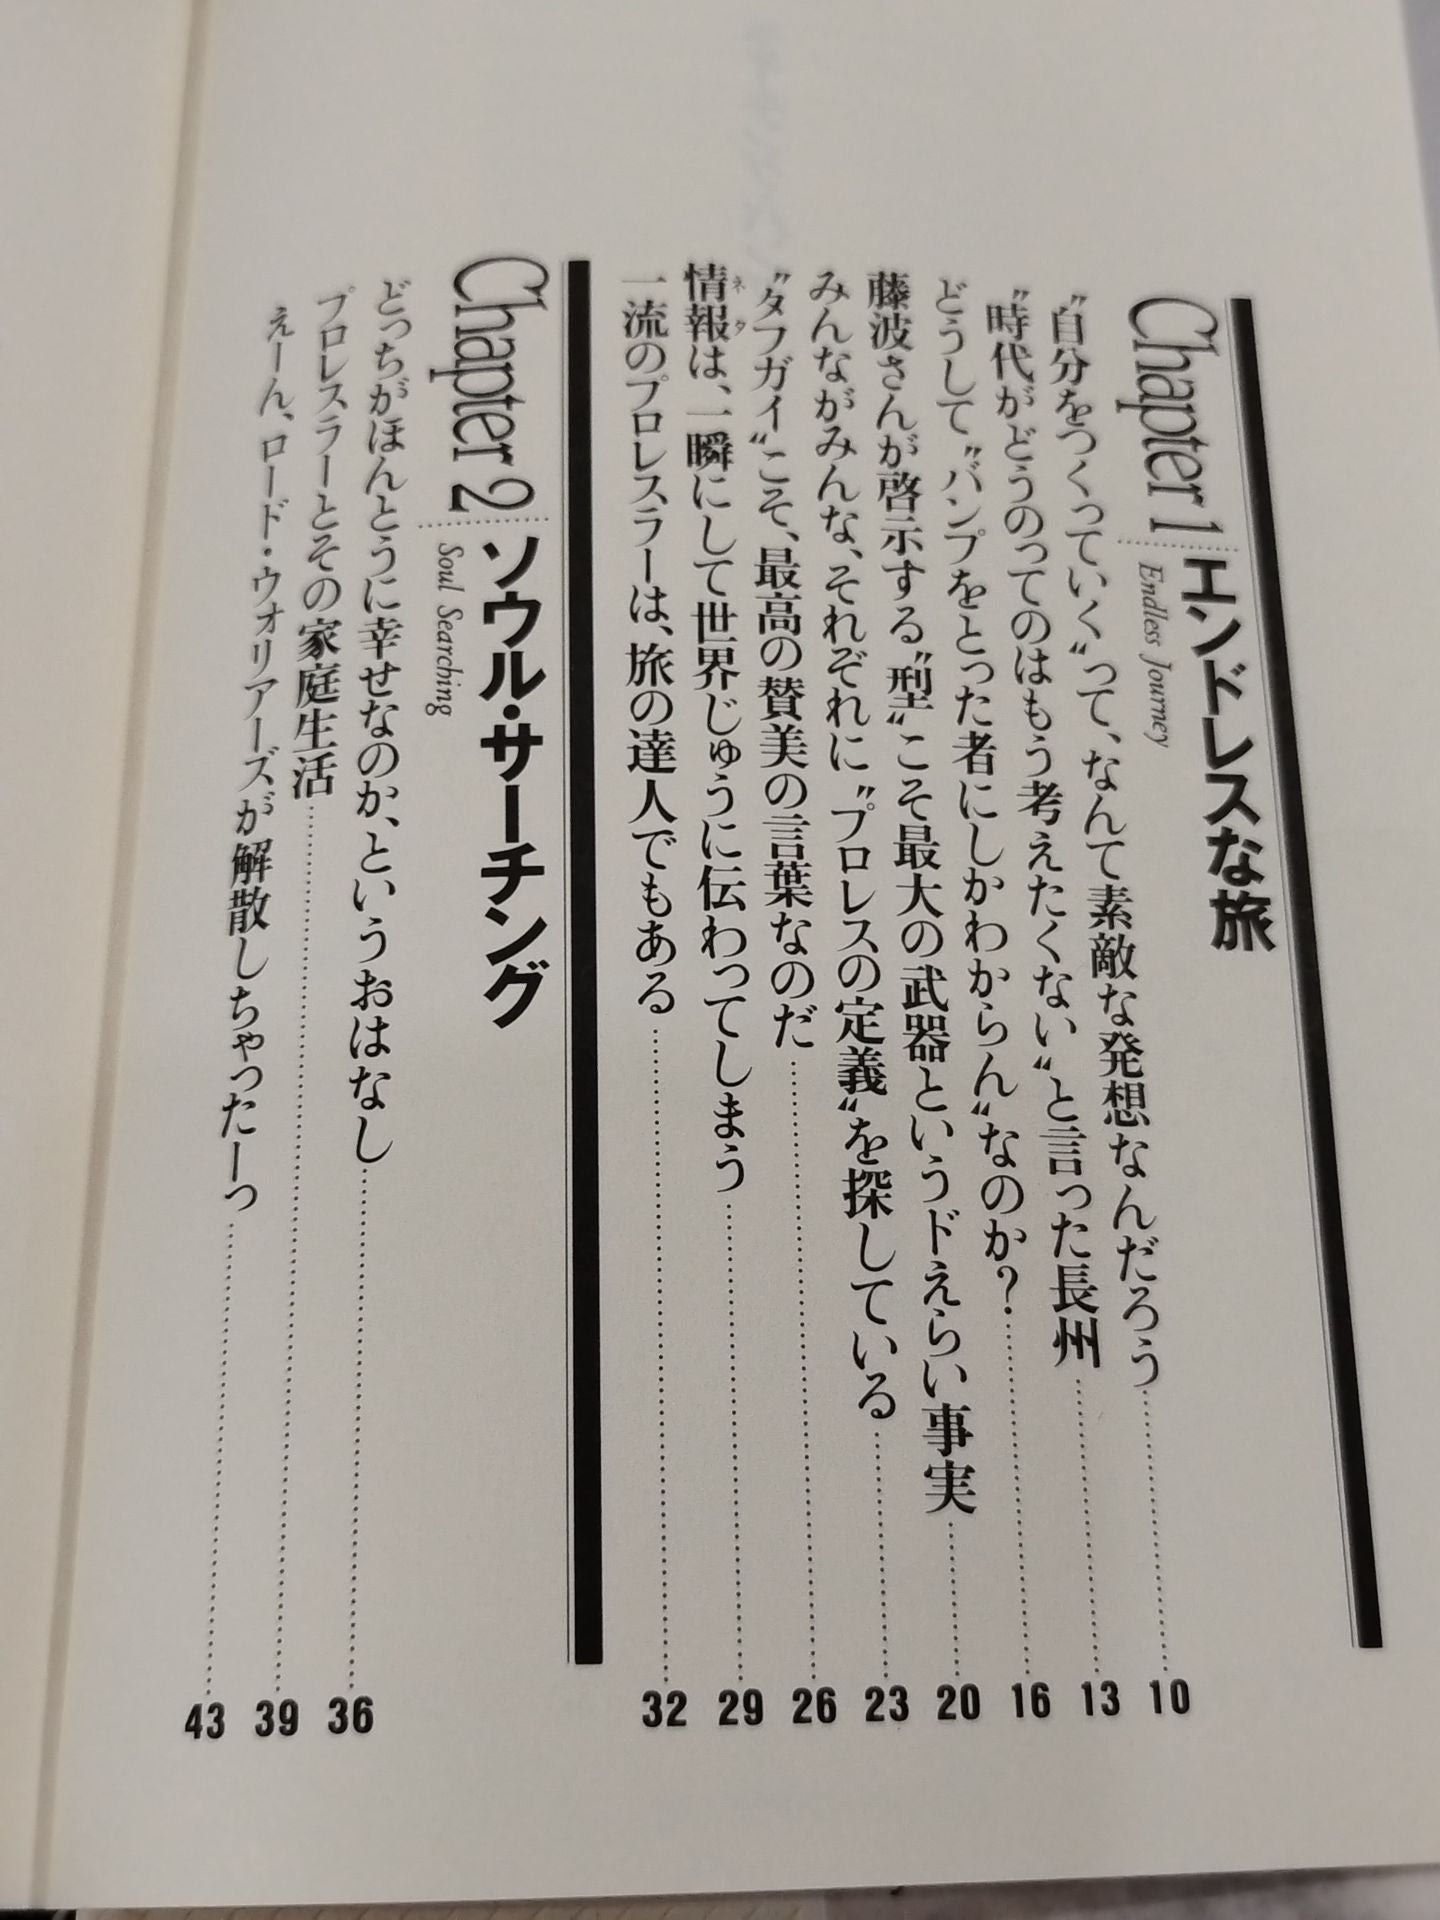 Chapter 1 エンドレスな旅
Endless Journey
〝自分をつくっていく〟って、なんて素敵な発想なんだろう 10
〝時代がどうのってのはもう考えたくない〟と言った長州 13
どうして〝バンプをとった者にしかわからん〟なのか? 16
藤波さんが啓示する〝型〟こそ最大の武器というドえらい事実 20
みんながみんな、それぞれに〝プロレスの定義〟を探している 23
〝タフガイ〟こそ、最高の賛美の言葉なのだ 26
情報は、一瞬にして世界じゅうに伝わってしまう 29
ネタ
一流のプロレスラーは、旅の達人でもある 32
Chapter 2 ソウル・サーチング
Soul Searching
どっちがほんとうに幸せなのか、というおはなし 36
プロレスラーとその家庭生活 39
えーん、ロード・ウォリアーズが解散しちゃったーっ 43